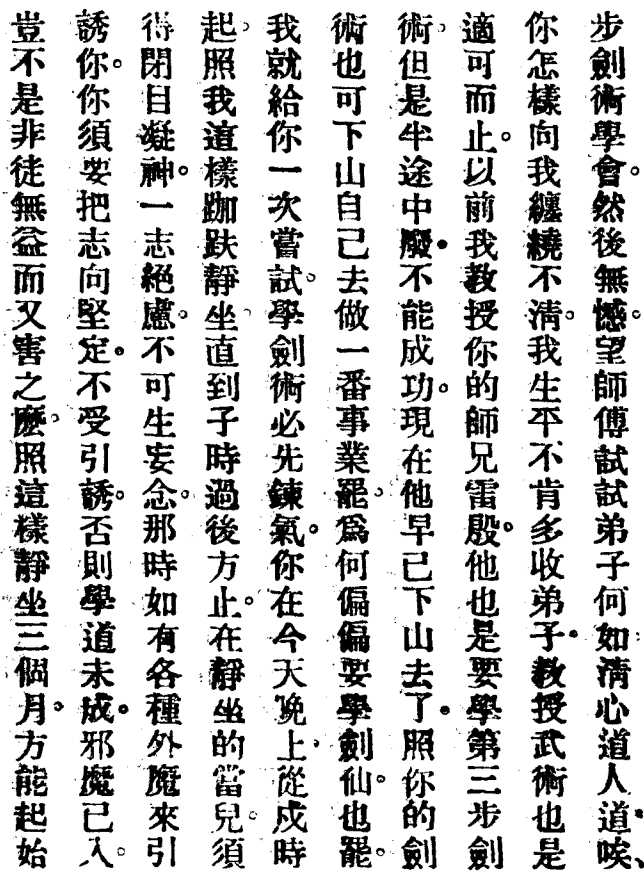 步劍術學會。然後無憾。望師傅試試弟子何如淸心道人道。唉、
你怎樣向我纏繞不淸。我生平不肯多收弟子。教授武術也是
適可而止。以前我教授你的師兄雷殷。他也是要學第三步劍
術。但是半途中廢。不能成功。現在他早已下山去了。照你的劍
術也可下山自己去做一番事業罷。爲何偏偏要學劍仙也罷。
我就給你一次嘗試。學劍術必先鍊氣。你在今天晚上。從戍時
起。照我這樣跏趺靜坐。直到子時過後方止。在靜坐的當兒。須
得閉目凝神。一志絕慮。不可生妄念。那時如有各種外魔來引
誘你。你須要把志向堅定。不受引誘。否則學道未成。邪魔已入。
豈不是非徒無益而又害之麽。照這樣靜坐三個月。方能起始